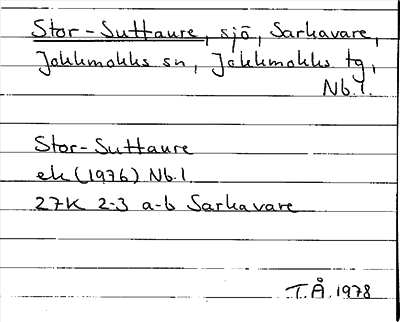 Stor-Suttaure, sjö, Sarkavare,
Jokkmokks sn, Jokkmokks tg,
Nb.l.
Stor-Suttaure
ek (1976) Nb.l
27K 2-3 a-b Sarkavare
T.Å. 1978